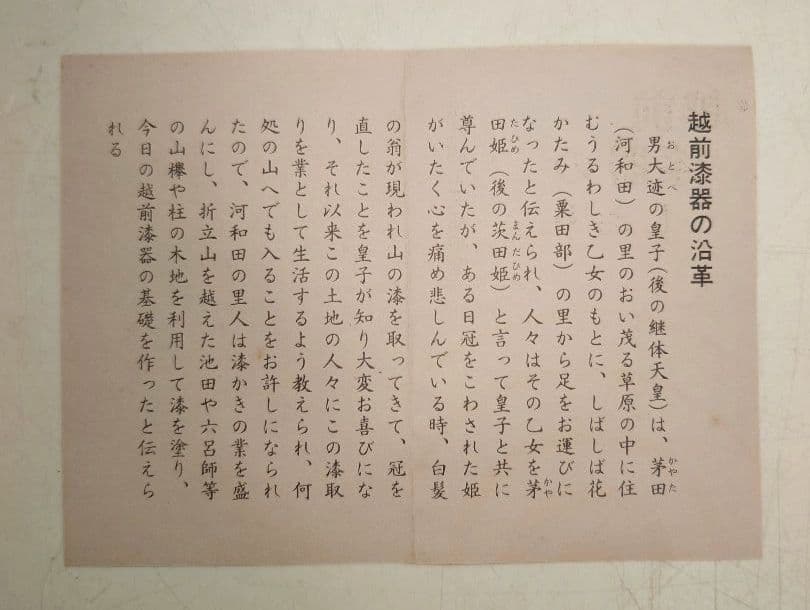 越前漆器の沿革
男大迹の皇子(後の継体天皇)は、茅田
(河和田)の里のおい茂る草原の中に住
むうるわしき乙女のもとに、しばしば花
かたみ(粟田部)の里から足をお運びに
なったと伝えられ、人々はその乙女を茅
田姫(後の茨田姫)と言って皇子と共に
尊んでいたが、ある日冠をこわされた姫
がいたく心を痛め悲しんでいる時、白髪
の翁が現われ山の漆を取ってきて、冠を
直したことを皇子が知り大変お喜びにな
り、それ以来この土地の人々にこの漆取
りを業として生活するよう教えられ、何
処の山へでも入ることをお許しになられ
たので、河和田の里人は漆かきの業を盛
んにし、折立山を越えた池田や六呂師等
の山欅や柱の木地を利用して漆を塗り、
今日の越前漆器の基礎を作ったと伝えら
れる